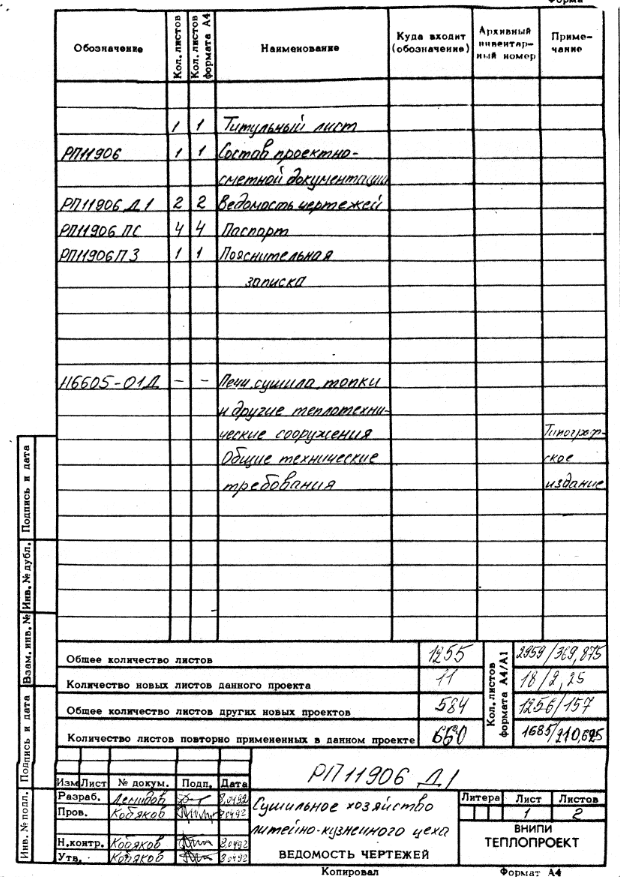 Форма
Обозначение Кол. листов Кол. листов формата А4 Наименование Куда входит (обозначение) Архивный инвентарный номер Примечание
1 1 Титульный лист
РП11906 1 1 Состав проектно-
сметной документации
РП11906 Д1 2 2 Ведомость чертежей
РП11906 ПС 4 4 Паспорт
РП11906 ПЗ 1 1 Пояснительная
записка
Н6605-01Д - - Печи, сушила, топки
и другие теплотехни-
ческие сооружения Типограф-
Общие технические ское
требования издание
Инв. № подл. Подпись и дата Взам. инв. № Инв. № дубл. Подпись и дата
Кол. листов формата А4/А1
Общее количество листов 1255 2959/369,875
Количество новых листов данного проекта 11 18/2,25
Общее количество листов других новых проектов 584 1256/157
Количество листов повторно примененных в данном проекте 660 1685/210,625
РП11906 Д1
Изм Лист № докум. Подп. Дата
Разраб. Демидов
Пров. Кобяков
Н.контр. Кобяков
Утв. Кобяков
Сушильное хозяйство
литейно-кузнечного цеха
ВЕДОМОСТЬ ЧЕРТЕЖЕЙ
Литера Лист Листов
1 2
ВНИПИ
ТЕПЛОПРОЕКТ
Копировал Формат А4